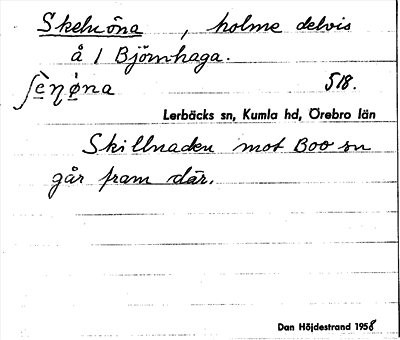 Skelnöna, holme delvis
å 1 Björnhaga.
518.
Lerbäcks sn, Kumla hd, Örebro län
Skillnaden mot Boo sn
går fram där.
Dan Höjdestrand 1958